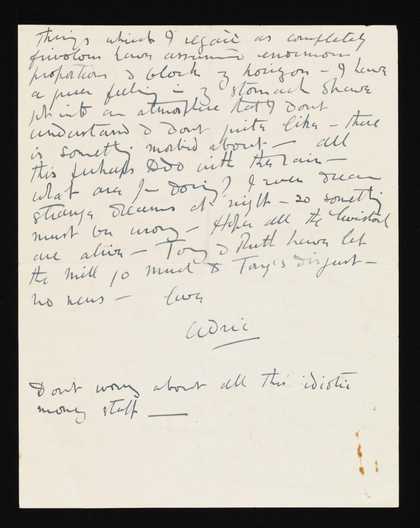 Things which I regard as completely
frivolous have assumed enormous
proportions & block my horizon – I have
a queer feeling in my stomach & have
got into an atmosphere that I dont
understand & dont quite like – there
is something morbid about – all
this perhaps do with the rain –
what are you doing? I even dream
strange dreams at night – so something
must be wrong – Hope all the
are alive – Tony & Ruth have let
the mill go much to Tony's disgust –
no news – love
Cedric
Dont worry about all this idiotic
money stuff —